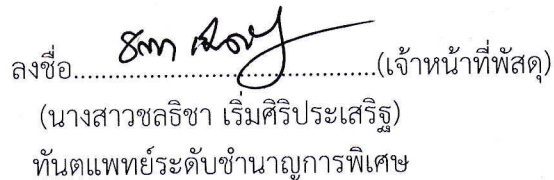 ลงชื่อ....................................(เจ้าหน้าที่พัสดุ)
(นางสาวชลธิชา เริ่มศิริประเสริฐ)
ทันตแพทย์ระดับชำนาญการพิเศษ